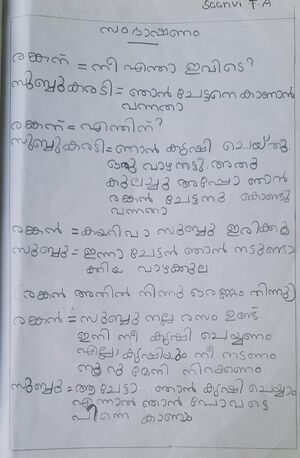 Saanvi T.A
സംഭാഷണം
രങ്കൻ = നീ എന്താ ഇവിടെ?
സുബ്ബുകരടി = ഞാൻ ചേട്ടനെ കാണാൻ
വന്നതാ
രങ്കൻ = എന്തിന്?
സുബ്ബുകരടി = ഞാൻ കൃഷി ചെയ്തു.
ഒരു വാഴനട്ടു. അതു
കുലച്ചു അപ്പോ ഞാൻ
രങ്കൻ ചേട്ടനു കൊണ്ടു
വന്നതാ
രങ്കൻ = കയറിവാ സുബ്ബു ഇരിക്കു
സുബ്ബു = ഇന്നാ ചേട്ടൻ ഞാൻ നട്ടുണ്ടാ
ക്കിയ വാഴക്കുല
(രങ്കൻ അതിൽ നിന്നു ഒരെണ്ണം തിന്നു)
രങ്കൻ = സുബ്ബു നല്ല രസം ഉണ്ട്
ഇനി നീ കൃഷി ചെയ്യണം
എല്ലാ കൃഷിയും നീ നടണം
നൂറു മേനി നിറക്കണം
സുബ്ബു = ആ ചേട്ടാ. ഞാൻ കൃഷി ചെയ്യാം
എന്നാൽ ഞാൻ പോവട്ടെ
പിന്നെ കാണാം